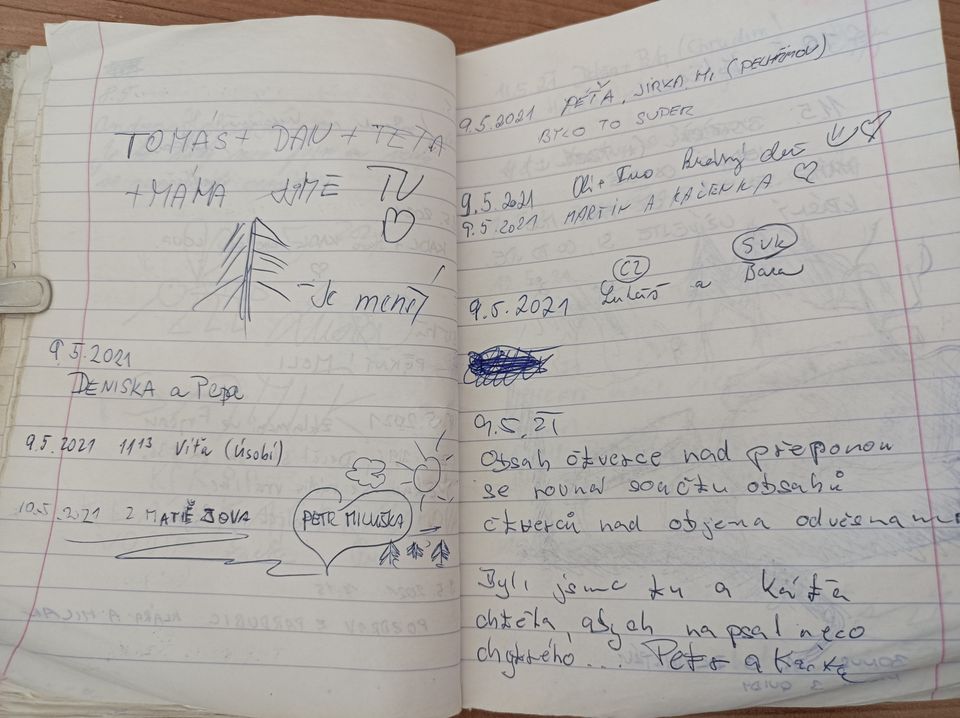 TOMÁŠ + DAN + TETA
+ MÁMA JSME TU
- Je menší
9.5.2021
DENISKA a Pepa
9.5.2021 11 13 Víťa (Úsobí)
10.5.2021 Z MATĚJOVA
PETR MILUŠKA
9.5.2021 PÉŤA, JIRKA, MI
BYLO TO SUPER
9.5.2021 Krásný den
9.5.2021 MARTIN A KAČENKA
CZ SVK
9.5.2021 Lukáš a Bara
9.5.21
Obsah čtverce nad přeponou
se rovná součtu obsahů
čtverců nad objema odvěsnama
Byli jsme tu a Káťa
chtěla, abych napsal něco
chytrého... Petr a Káťa